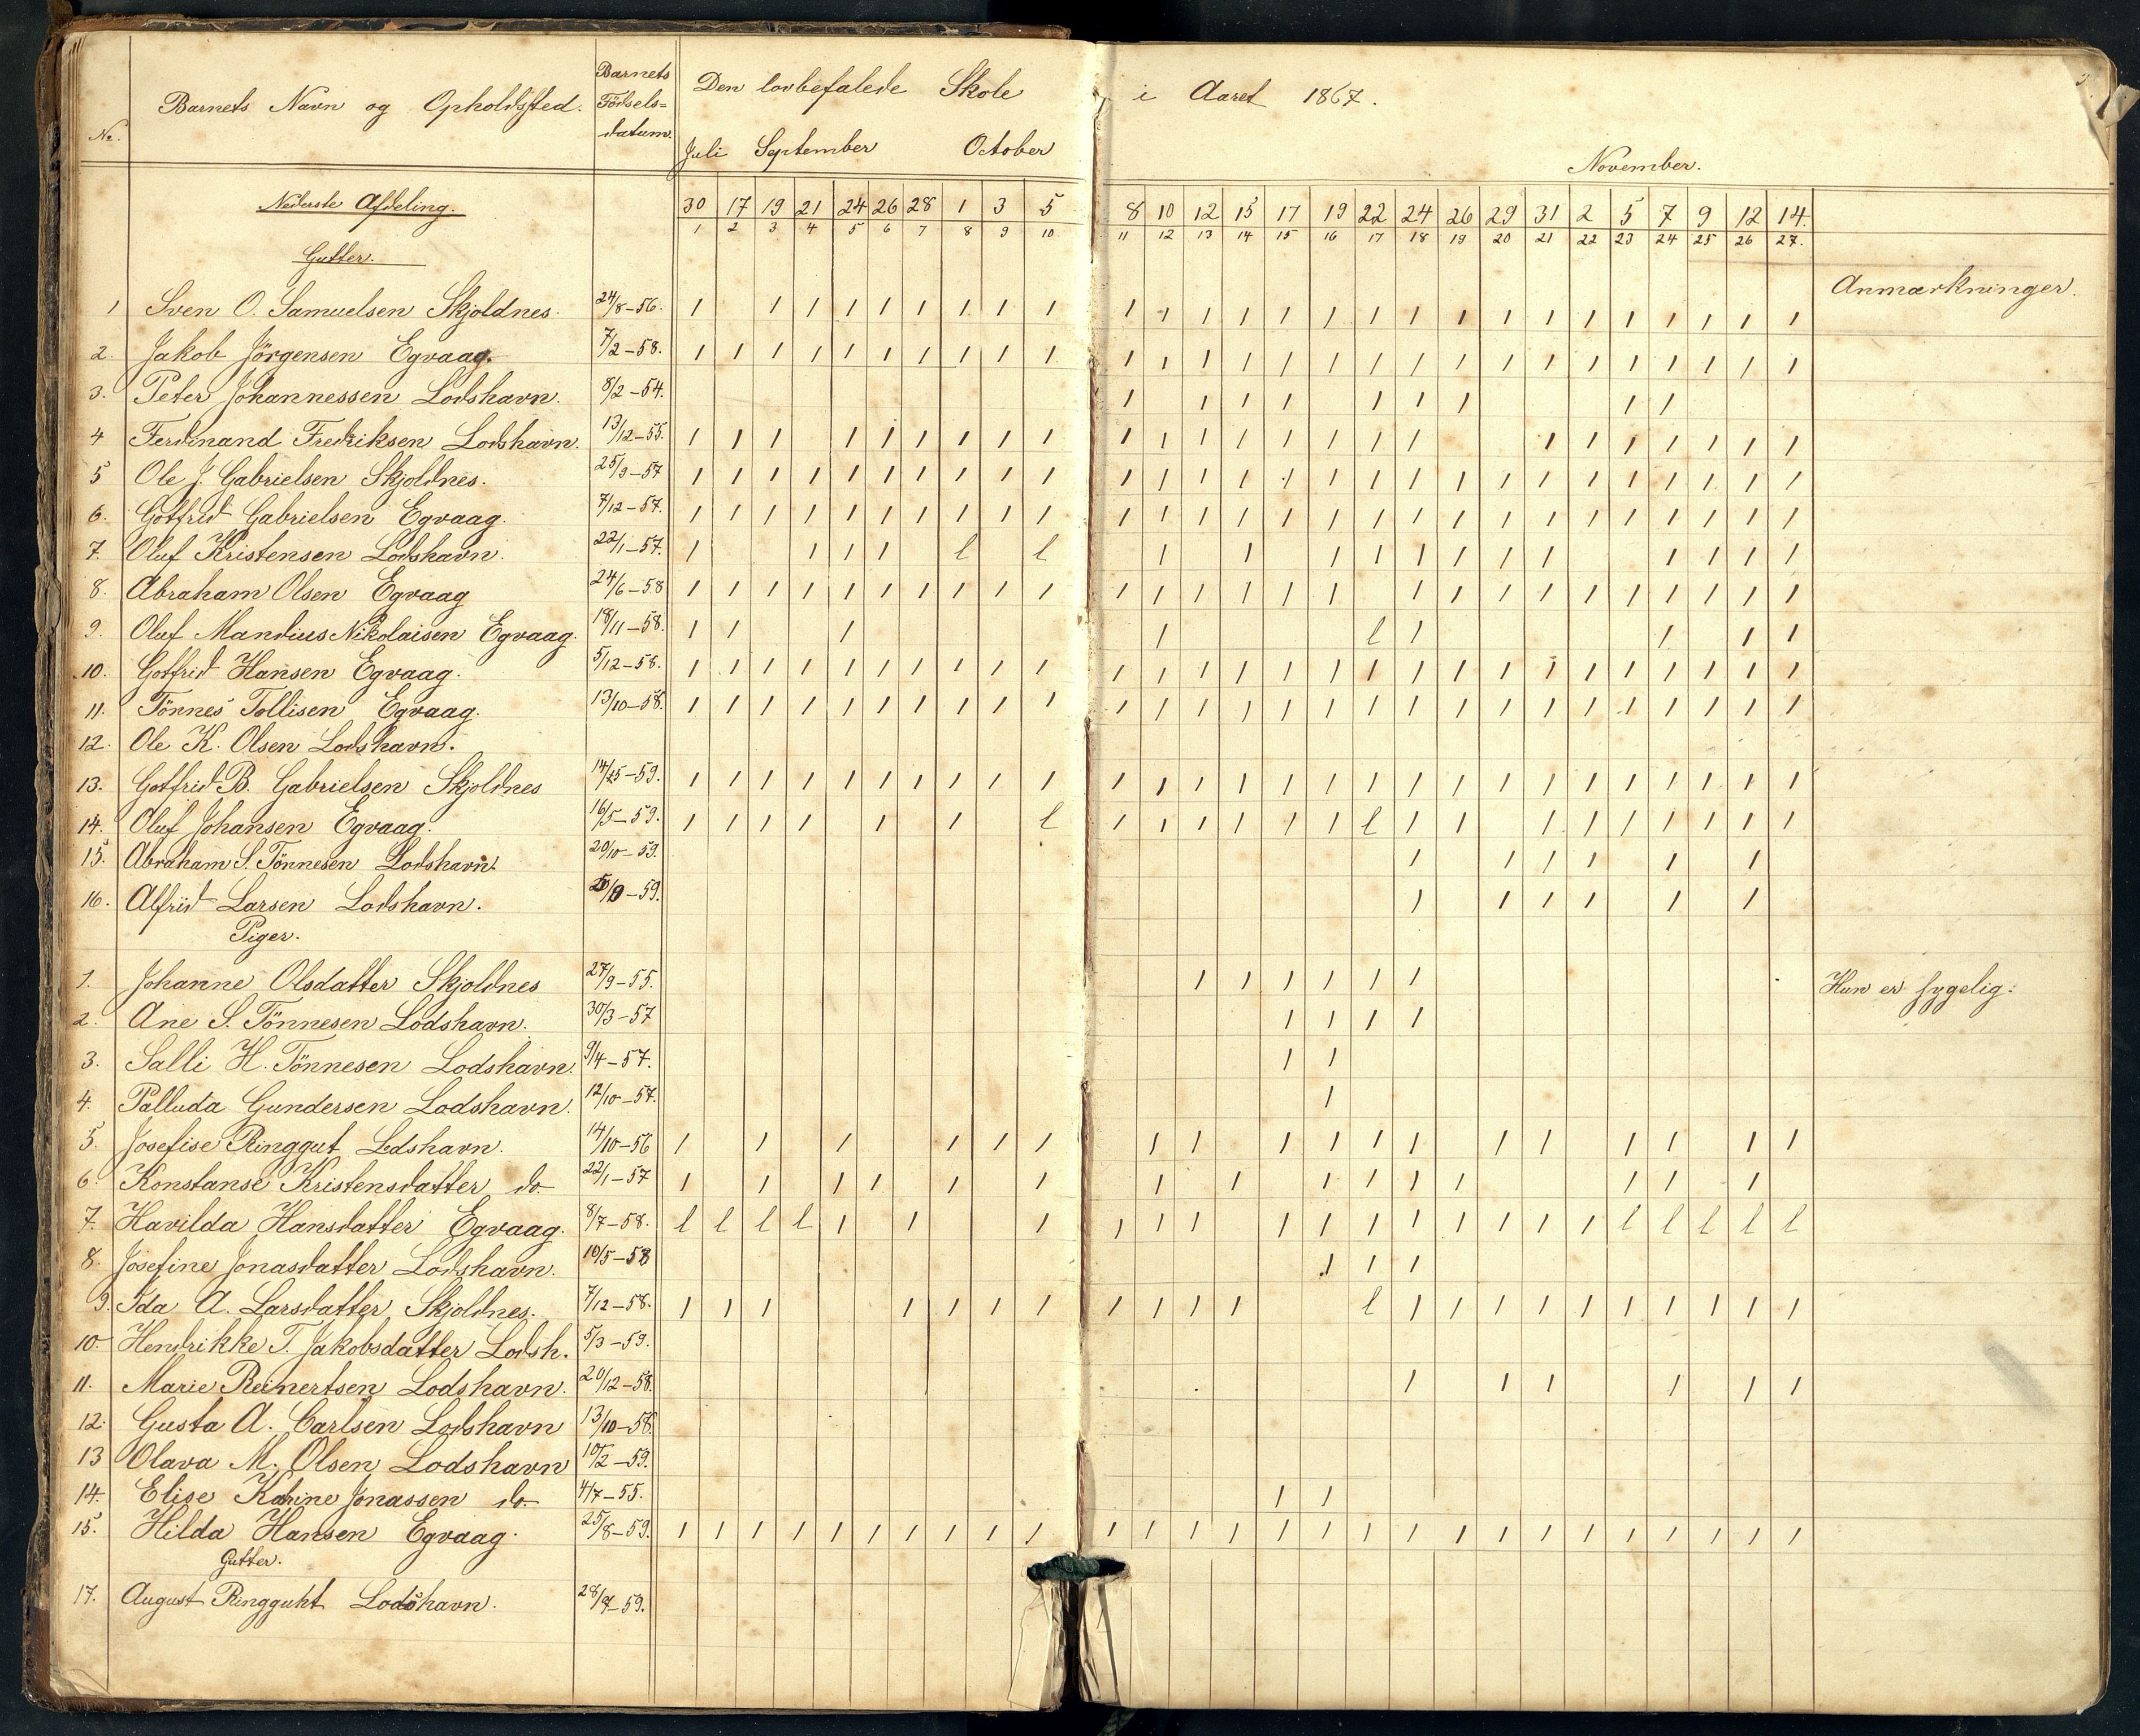 Nr. Barnets Navn og Opholdssted. Barnets Födsels=datum. Den lovbefalede Skole i Aaret 1867.
Juli September October November.
Nederste Afdeling. 30 17 19 21 24 26 28 1 3 5 8 10 12 15 17 19 22 24 26 29 31 2 5 7 9 12 14.
1 2 3 4 5 6 7 8 9 10 11 12 13 14 15 16 17 18 19 20 21 22 23 24 25 26 27.
Gutter.
Anmærkninger.
1 Sven O. Samuelsen Skjoldnes. 24/8-56. 1 1 1 1 1 1 1 1 1 1 1 1 1 1 1 1 1 1 1 1 1 1 1 1 1 1
2. Jakob Jörgensen Egvaag. 7/2-58. 1 1 1 1 1 1 1 1 1 1 1 1 1 1 1 1 1 1 1 1 1 1 1 1 1 1 1
3. Peter Johannessen Lodshavn. 8/2-54. 1 1 1 1 1 1 1 1 1
4 Ferdinand Fredriksen Lodshavn. 13/12-55. 1 1 1 1 1 1 1 1 1 1 1 1 1 1 1 1 1 1 1 1 1 1 1 1
5 Ole J. Gabrielsen Skjoldnes. 25/9-57 1 1 1 1 1 1 1 1 1 1 1 1 1 1 1 1 1 1 1 1 1 1 1 1 1 1 1
6. Gotfrid Gabrielsen Egvaag. 7/12-57. 1 1 1 1 1 1 1 1 1 1 1 1 1 1 1 1 1 1 1 1 1 1 1 1 1 1 1
7. Oluf Kristensen Lodshavn. 22/1-57. 1 1 1 1 l l 1 1 1 1 1 1 1 1 1 1 1 1
8. Abraham Olsen Egvaag 24/6-58 1 1 1 1 1 1 1 1 1 1 1 1 1 1 1 1 1 1 1 1 1 1 1 1 1 1
9. Oluf Mandius Nikolaisen Egvaag. 18/11-58. 1 1 1 1 l 1 1 1 1
10. Gotfrid Hansen Egvaag. 5/12-58. 1 1 1 1 1 1 1 1 1 1 1 1 1 1 1 1 1 1 1 1 1 1 1 1 1 1 1
11. Tönnes Tollisen Egvaag. 13/10-58. 1 1 1 1 1 1 1 1 1 1 1 1 1 1 1 1 1 1 1 1 1 1 1 1 1 1 1
12. Ole K. Olsen Lodshavn.
13. Gotfrid B. Gabrielsen Skjoldnes -59. 1 1 1 1 1 1 1 1 1 1 1 1 1 1 1 1 1 1 1 1 1 1 1 1 1 1 1
14. Oluf Johansen Egvaag. 16/5-59. 1 1 1 1 1 1 l 1 1 1 1 1 1 l 1 1 1 1 1 1 1 1 1
15. Abraham S. Tönnesen Lodshavn. 20/10-59. 1 1 1 1 1 1
16. Alfrid Larsen Lodshavn. -59. 1 1 1 1 1 1
Piger.
1. Johanne Olsdatter Skjoldnes 27/9-55. 1 1 1 1 1 1 Hun er sygelig.
2. Ane S. Tönnesen Lodshavn. 30/3-57 1 1 1 1
3. Salli H. Tönnesen Lodshavn. 9/4-57. 1 1
4. Palluda Gundersen Lodshavn. 12/10-57. 1
5. Josefise Ringgut Lodshavn. 14/10-56 1 1 1 1 1 1 1 1 1 1 1 1 1 1 1 1 1 1
6. Konstanse Kristensdatter do 22/1-57 1 1 1 1 1 1 1 1 1 1 1 1 1 1 1
7. Havilda Hansdatter Egvaag. 8/7-58. l l l l 1 1 1 1 1 1 1 1 1 1 1 1 1 1 l l l l l
8. Josefine Jonasdatter Lodshavn. 10/5-58 1 1 1
9. Ida A. Larsdatter Skjoldnes. 7/12-58. 1 1 1 1 1 1 1 1 1 1 1 l 1 1 1 1 1 1 1 1 1 1
10 Hendrikke T. Jakobsdatter Lodsh. 5/3-59.
11. Marie Reinertsen Lodshavn. 20/12-58. 1 1 1 1 1 1
12. Gusta A. Carlsen Lodshavn 13/10-58.
13 Olava M. Olsen Lodshavn 10/2-59.
14. Elise Katrine Jonassen do 4/7-55. 1 1
15. Hilda Hansen Egvaag. 25/8-59. 1 1 1 1 1 1 1 1 1 1 1 1 1 1 1 1 1 1 1 1 1 1 1 1 1 1 1
Gutter.
17. August Ringguht Lodshavn. -59.